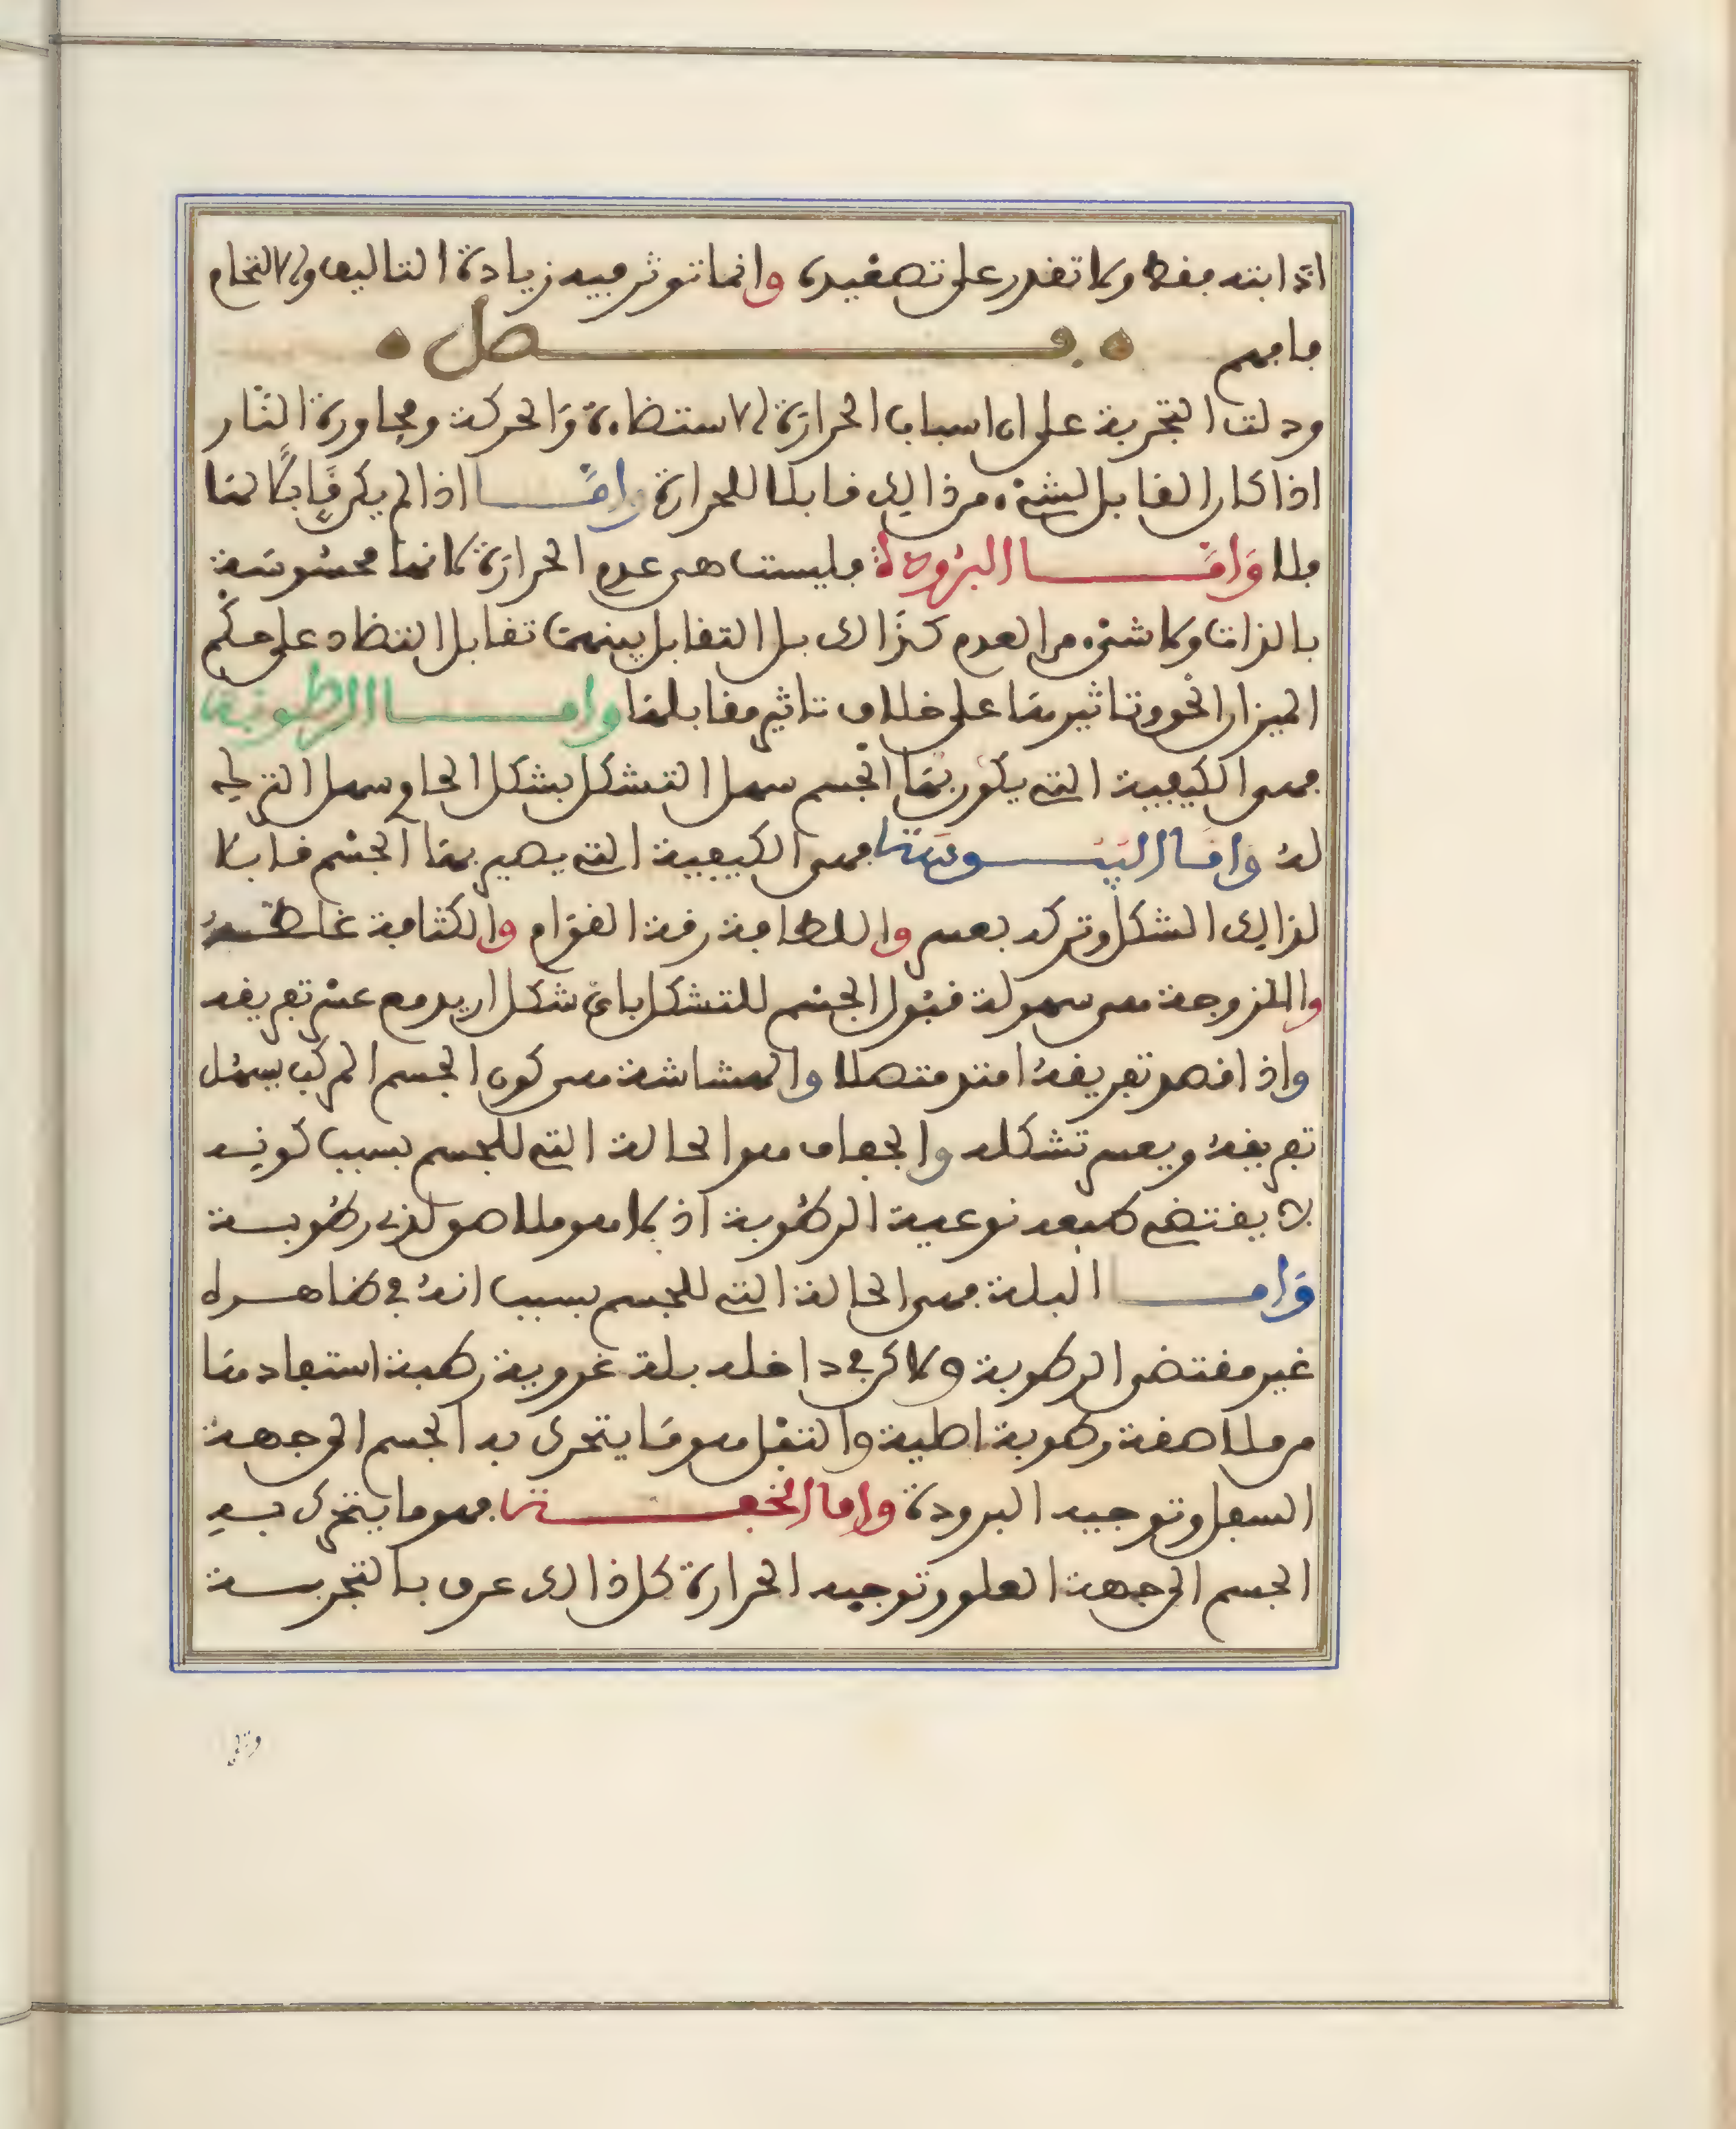 اذابته فقط ولا تقدر على تصعيده وانما تؤثر فيه زيادة التأليف والالتحام
فافهم فصل
ودلت التجربة على ان اسباب الحرارة الاستضاءة والحركة ومجاورة النار
اذا كان القابل لشيء من ذالك قابلا للحرارة وامّا اذا لم يكن قابلًا لها
فلا وَامَّا البرُودة فليست هي عدم الحرارة لانها محسُوسَة
بالذات ولا شيء من العدم كذَالك بل التقابل بينهما تقابل التضاد على حكم
الميزان الحق وتاثيرها على خلاف تاثير مقابلها واما الرطوبة
فهي الكيفية التي يكون بها الجسم سهل التشكل بشكل الحاوي سهل الترك
له وَامَا اليبُوسَة فهي الكيفية التي يصير بها الجسْم قابلا
لذالك الشكل وتركه بعسر واللطافة رقة القوَام والكثافة غلظه
واللزوجة هي سهولة قبُول الجسْم للتشكل باي شكل اريد مع عسْر تفريقه
واذا قصد تفريقهُ امتد متصلا والهشاشة هي كون الجسم المركب يسهُل
تفريقهُ ويعسر تشكله والجفاف هو الحالة التي للجسم بسبب كونه
لا يقتضي طبعه نوعية الرطُوبة اذ لا هو ملاصق لذي رطُوبة
وَاما البلة فهي الحالة التي للجسم بسبب انهُ في ظاهره
غير مقتضي الرطوبة ولاكن في داخله بلة غروية رطبة استفادها
من ملاصقة رطوبة اصلية والثقل هو مَا يتحرك به الجسم الى جهة
السفل وتوجبه البرودة واما الخفة فهو ما يتحرك بهِ
الجسم الى جهة العلو وتوجبه الحرارة كل ذالك عرف بالتجربة